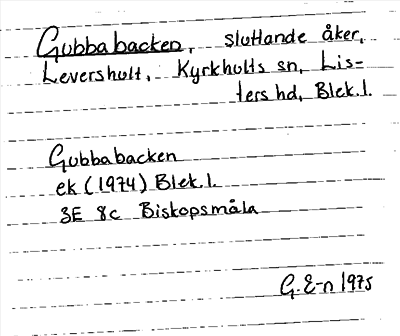 Gubbabacken, sluttande åker,
Levershult, Kyrkhults sn, Lis-
ters hd, Blek.l.
Gubbabacken
ek (1974) Blek.l.
3E 8c Biskopsmåla
G. E-n 1975